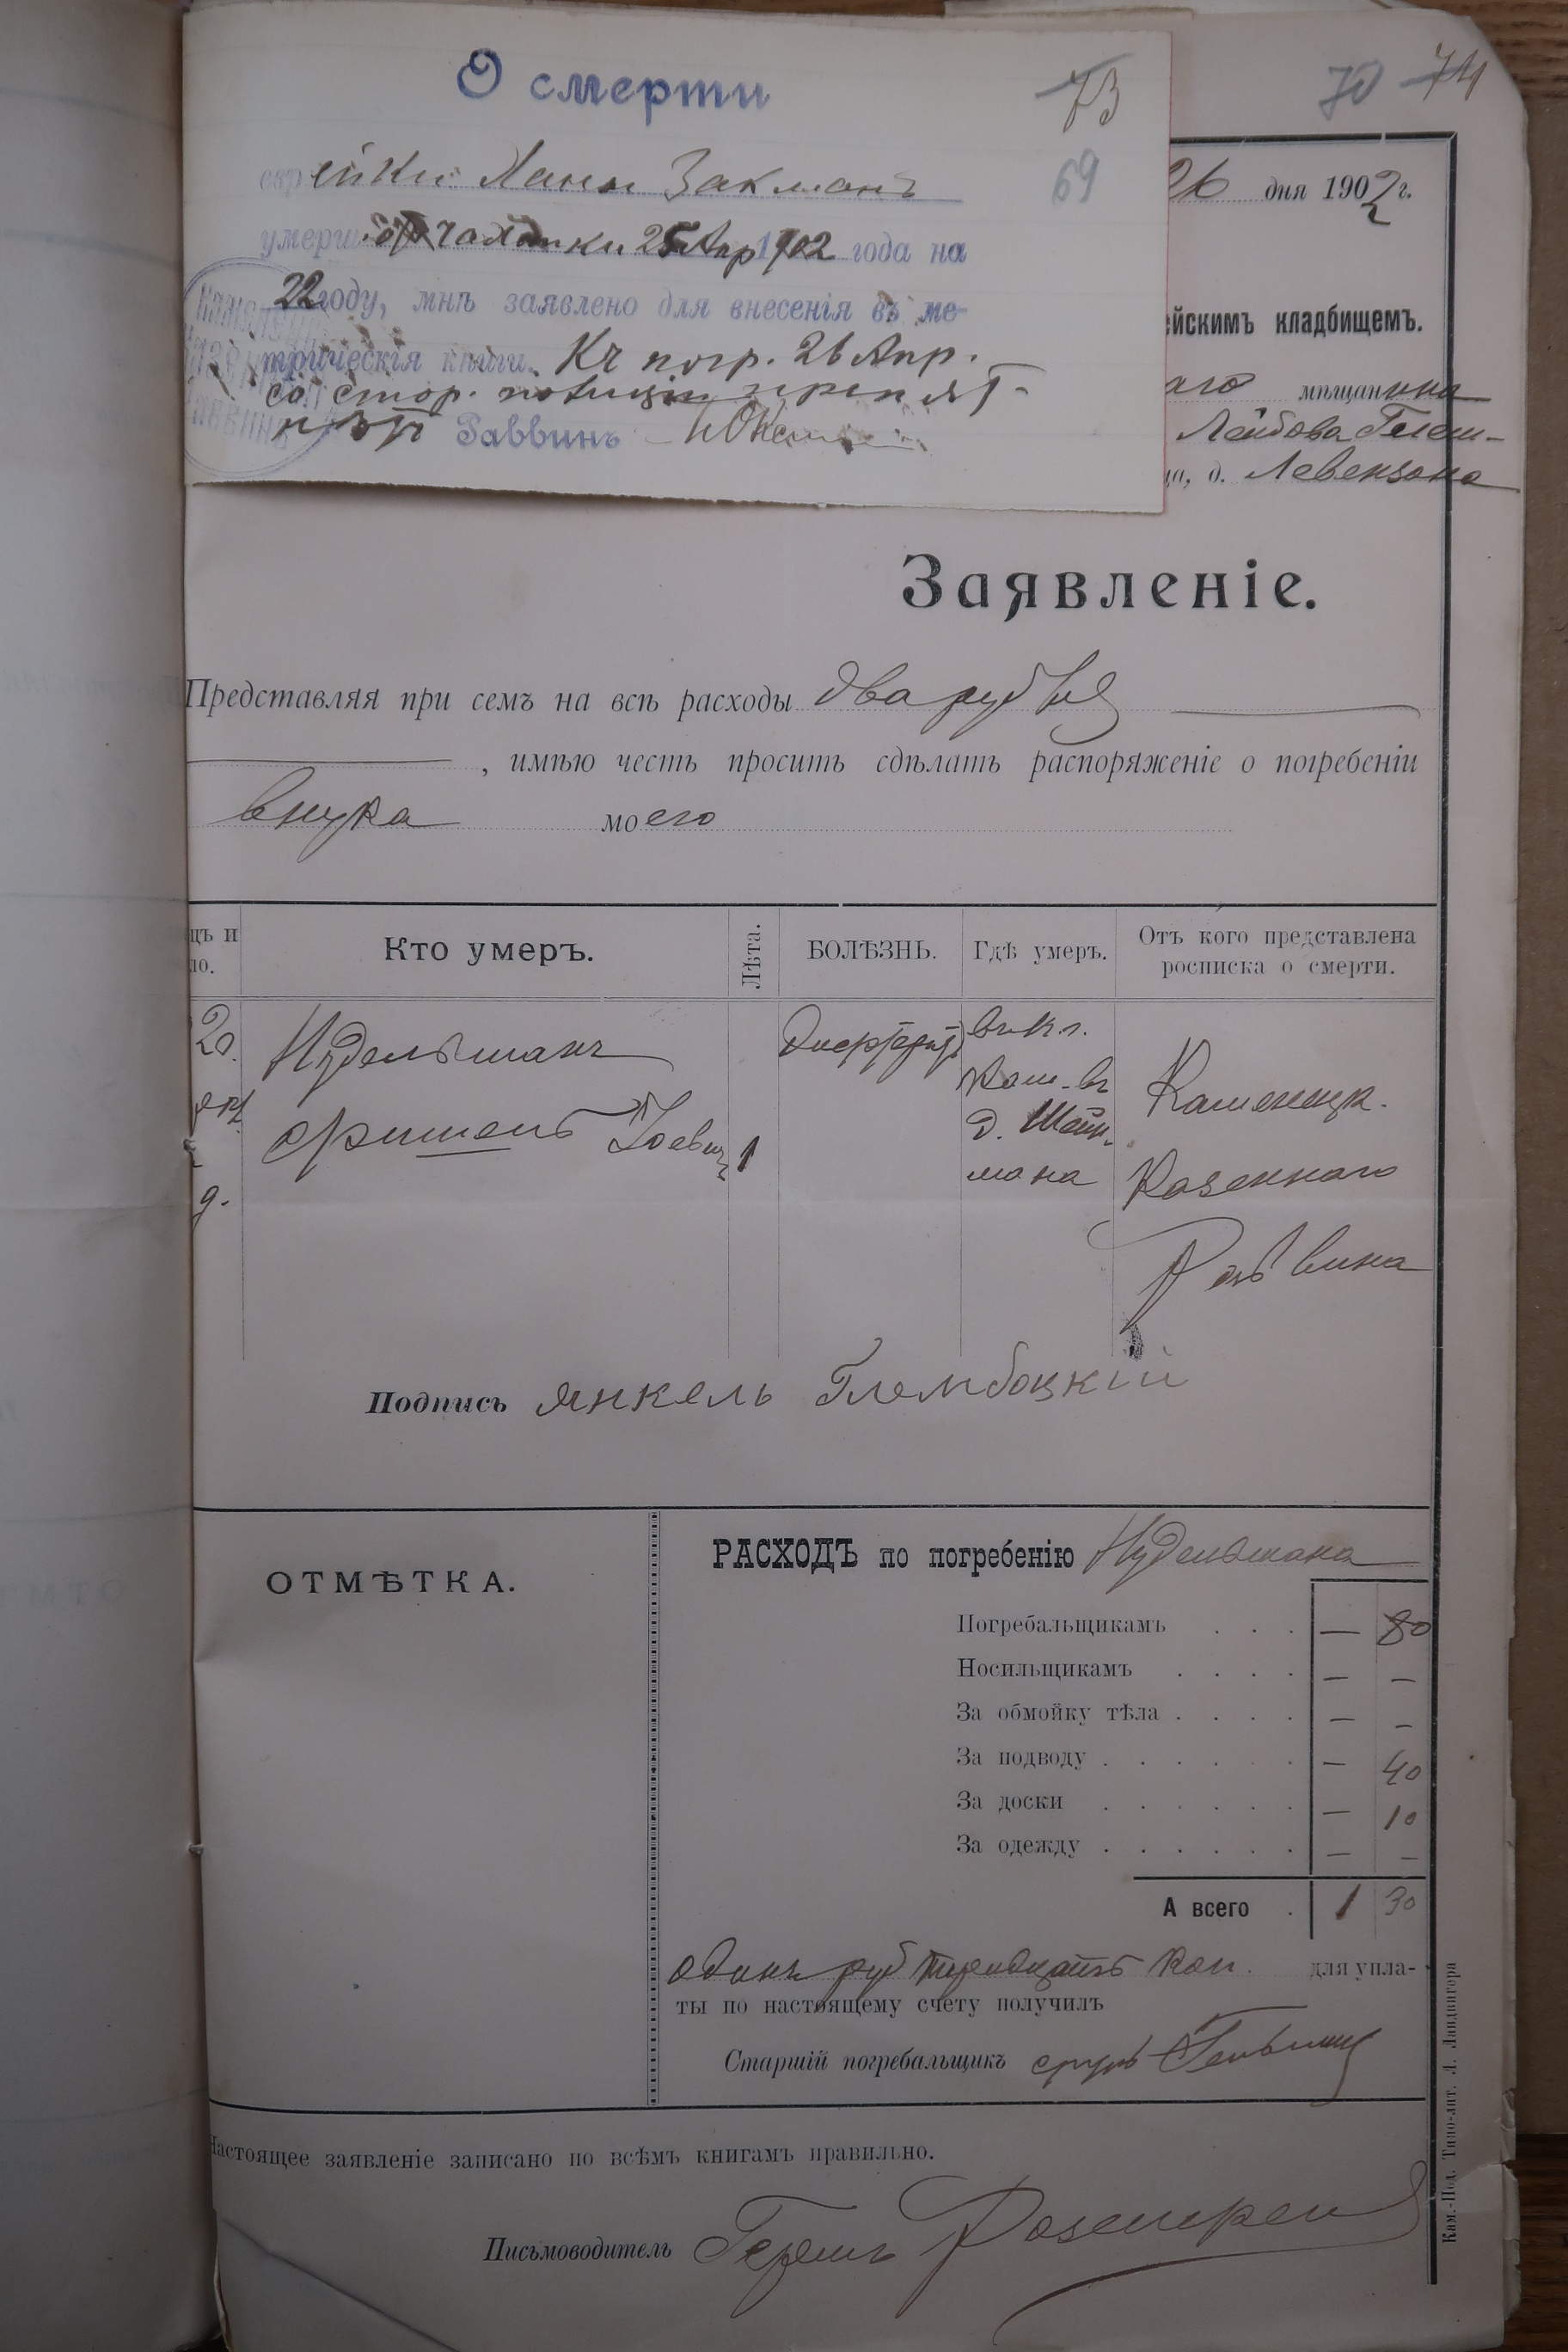 О смерти
73
70 74
еврейки Ханы Закманъ
69
26 дня 1902 г.
умерш. чахотки 25 Апр 1902 года на
22 году, мнѣ заявлено для внесенія въ ме-
ейскимъ кладбищемъ.
трическія книги. Къ погр. 26 Апр.
аго мѣщанина
со стор. полиціи препят-
Лейбова Глем-
Раввинъ
ца, д. Левензона
Заявленіе.
Представляя при семъ на всѣ расходы два рубля
, имѣю честь просить сдѣлать распоряженіе о погребеніи
внука моего
цъ и
ло.
Кто умеръ.
Лѣта.
БОЛѢЗНЬ.
Гдѣ умеръ.
Отъ кого представлена
росписка о смерти.
Нудельманъ
Дифтеритъ
д. Штейн-
мана
1
Каменецк.
Казеннаго
Раввина
Подпись Янкель Глембоцкій
ОТМѢТКА.
РАСХОДЪ по погребенію Нудельмана
Погребальщикамъ . . . — 80
Носильщикамъ . . . . — —
За обмойку тѣла . . . . — —
За подводу . . . . . . — 40
За доски . . . . . . — 10
За одежду . . . . . . — —
А всего . 1 30
одинъ руб тридцать коп. для упла-
ты по настоящему счету получилъ
Старшій погребальщикъ
Настоящее заявленіе записано по всѣмъ книгамъ правильно.
Письмоводитель Гершъ
Кам.-Под. Типо-лит. Л. Ландвигера